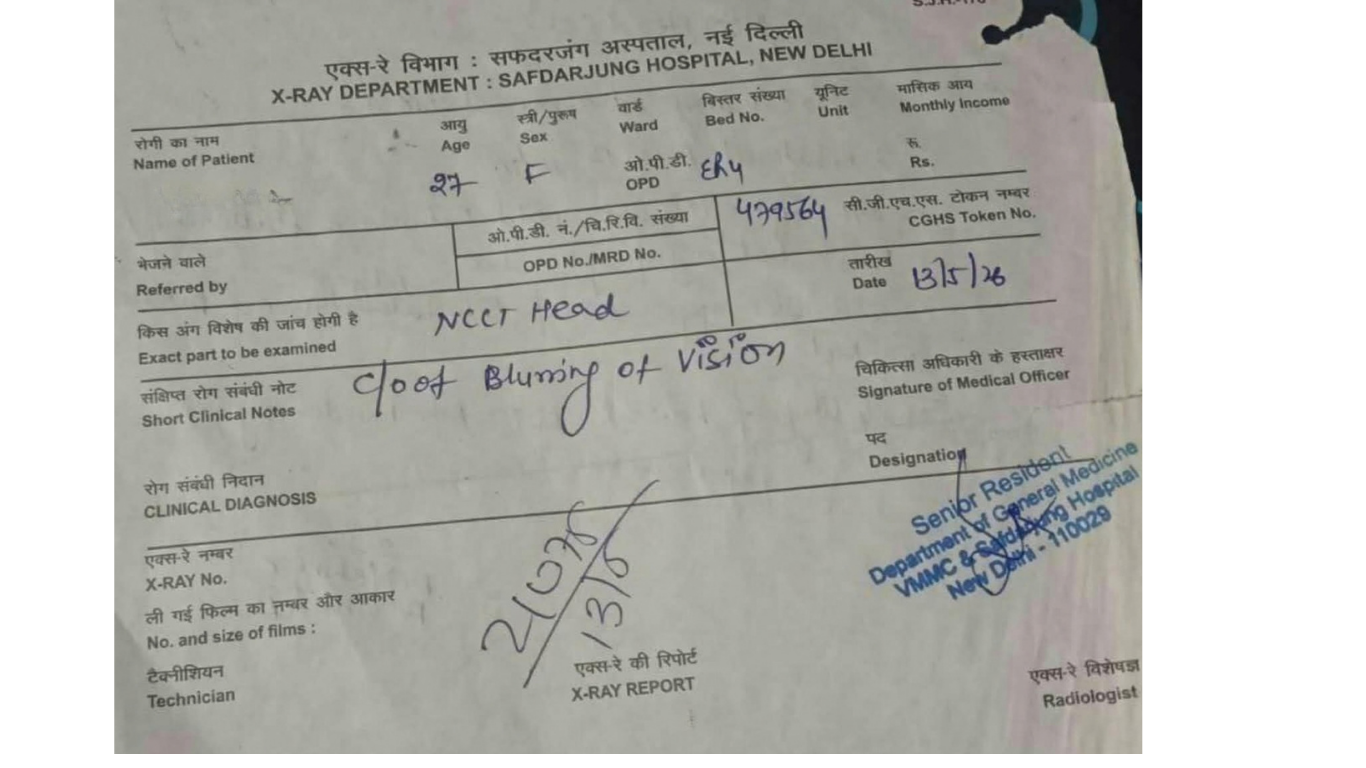 एक्स-रे विभाग : सफदरजंग अस्पताल, नई दिल्ली
X-RAY DEPARTMENT : SAFDARJUNG HOSPITAL, NEW DELHI
रोगी का नाम
Name of Patient
आयु
Age
27
स्त्री/पुरूष
Sex
F
वार्ड
Ward
ओ.पी.डी.
OPD
बिस्तर संख्या
Bed No.
यूनिट
Unit
मासिक आय
Monthly Income
रू.
Rs.
भेजने वाले
Referred by
ओ.पी.डी. नं./चि.रि.वि. संख्या
OPD No./MRD No.
479564
सी.जी.एच.एस. टोकन नम्बर
CGHS Token No.
तारीख
Date 13/5/26
किस अंग विशेष की जांच होगी है
Exact part to be examined
NCCT Head
संक्षिप्त रोग संबंधी नोट
Short Clinical Notes
c/o of Blurring of Vision
चिकित्सा अधिकारी के हस्ताक्षर
Signature of Medical Officer
पद
Designation
Senior Resident
Department of General Medicine
VMMC & Safdarjung Hospital
New Delhi - 110029
रोग संबंधी निदान
CLINICAL DIAGNOSIS
एक्स-रे नम्बर
X-RAY No.
ली गई फिल्म का नम्बर और आकार
No. and size of films :
टैक्नीशियन
Technician
एक्स-रे की रिपोर्ट
X-RAY REPORT
एक्स-रे विशेषज्ञ
Radiologist